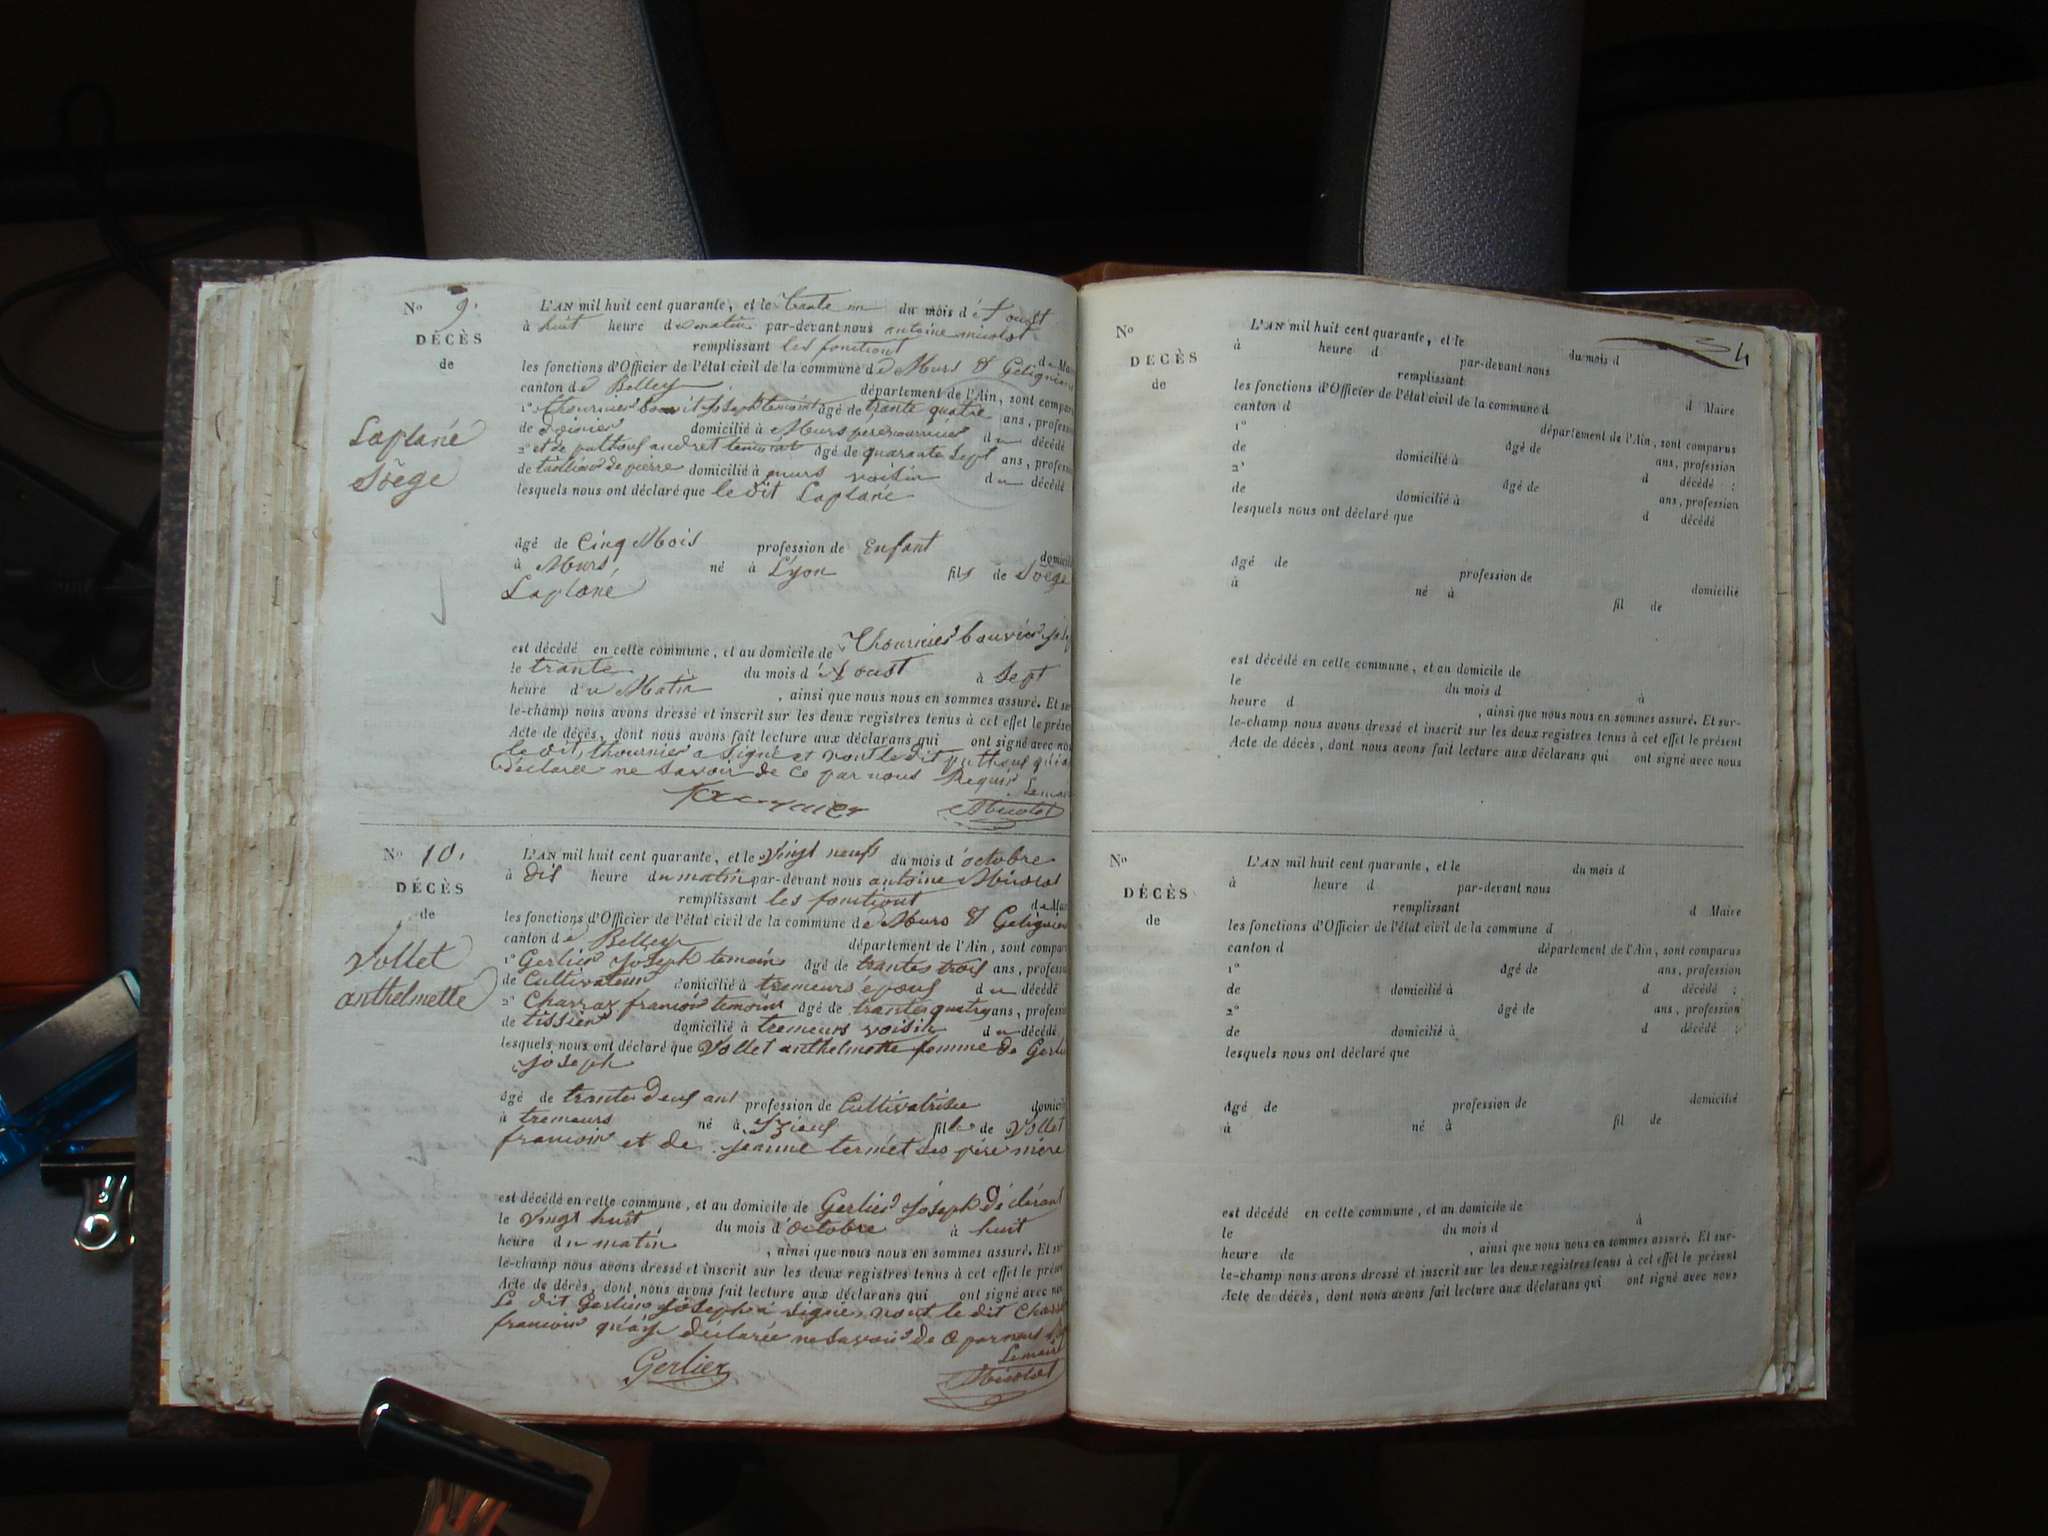 No 9.
DÉCÈS
de
Laplané
Soège
L'AN mil huit cent quarante, et le trante un du mois d'Aoust
à huit heure du matin par-devant nous antoine micolot
remplissant les fonctions du Mai
les fonctions d'Officier de l'état civil de la commune de Murs & Gelignieu
canton de Belley département de l'Ain, sont compar
1° thournier bouvit Joseph temoint âgé de trante quatre ans, profess
de domicilié à Murs pere nourricier du décédé
2° et de andret temoint âgé de quarante Sept ans, profess
de de pierre domicilié à murs voisin du décédé
lesquels nous ont déclaré que le dit Laplané
âgé de Cinq Mois profession de Enfant domicil
à Murs, né à Lyon fils de Soège
Laplané
est décédé en cette commune, et au domicile de Thournier bouvier
le trante du mois d'Aoust à Sept
heure du Matin , ainsi que nous nous en sommes assuré. Et su
le-champ nous avons dressé et inscrit sur les deux registres tenus à cet effet le prése
Acte de décès, dont nous avons fait lecture aux déclarans qui ont signé avec nou
le dit, thournier a Signé et nont le dit
déclarée ne Savoir de Ce par nous Requis
Le mai
Micolot
No 10.
DÉCÈS
de
Vollet
anthelmette
L'AN mil huit cent quarante, et le Vingt neufs du mois d'octobre
à dis heure du matin par-devant nous antoine Micolot
remplissant les fonctions du Mai
les fonctions d'Officier de l'état civil de la commune de Murs & Gelignieu
canton de Belley département de l'Ain, sont compar
1° Gerlier Joseph temoins âgé de trantes trois ans, professi
de Cultivateur domicilié à tremeurs épous du décédé
2° Charraz francois temoins âgé de trantes quatre ans, profess
de tissier domicilié à tremeurs voisin du décédé
lesquels nous ont déclaré que Vollet anthelmette femme de Gerli
Joseph
âgé de trante deus ans profession de Cultivatrise domici
à tremeurs né à Izieus fille de Vollet
francois et de jeanne termet Ses père mère
est décédé en cette commune, et au domicile de Gerlier Joseph déclarant
le Vingt huit du mois d'octobre à huit
heure du matin , ainsi que nous nous en sommes assuré. Et su
le-champ nous avons dressé et inscrit sur les deux registres tenus à cet effet le prése
Acte de décès, dont nous avons fait lecture aux déclarans qui ont signé avec no
Le dit Gerlier Joseph à Signé, nont le dit Charra
francois déclarée ne Savoir de Ce par nous
Le maire
Gerlier
Micolot
4
No
DÉCÈS
de
L'AN mil huit cent quarante, et le du mois d
à heure d par-devant nous
remplissant d Maire
les fonctions d'Officier de l'état civil de la commune d
canton d département de l'Ain, sont comparus
1° âgé de ans, profession
de domicilié à d décédé ;
2° âgé de ans, profession
de domicilié à d décédé
lesquels nous ont déclaré que
âgé de profession de domicilié
à né à fil de
est décédé en cette commune, et au domicile de
le du mois d à
heure d , ainsi que nous nous en sommes assuré. Et sur-
le-champ nous avons dressé et inscrit sur les deux registres tenus à cet effet le présent
Acte de décès, dont nous avons fait lecture aux déclarans qui ont signé avec nous
No
DÉCÈS
de
L'AN mil huit cent quarante, et le du mois d
à heure d par-devant nous
remplissant d Maire
les fonctions d'Officier de l'état civil de la commune d
canton d département de l'Ain, sont comparus
1° âgé de ans, profession
de domicilié à d décédé ;
2° âgé de ans, profession
de domicilié à d décédé
lesquels nous ont déclaré que
âgé de profession de domicilié
à né à fil de
est décédé en cette commune, et au domicile de
le du mois d à
heure de , ainsi que nous nous en sommes assuré. Et sur-
le-champ nous avons dressé et inscrit sur les deux registres tenus à cet effet le présent
Acte de décès, dont nous avons fait lecture aux déclarans qui ont signé avec nous